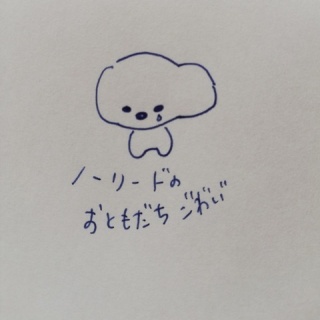 ノーリードの
おともだち ごわい